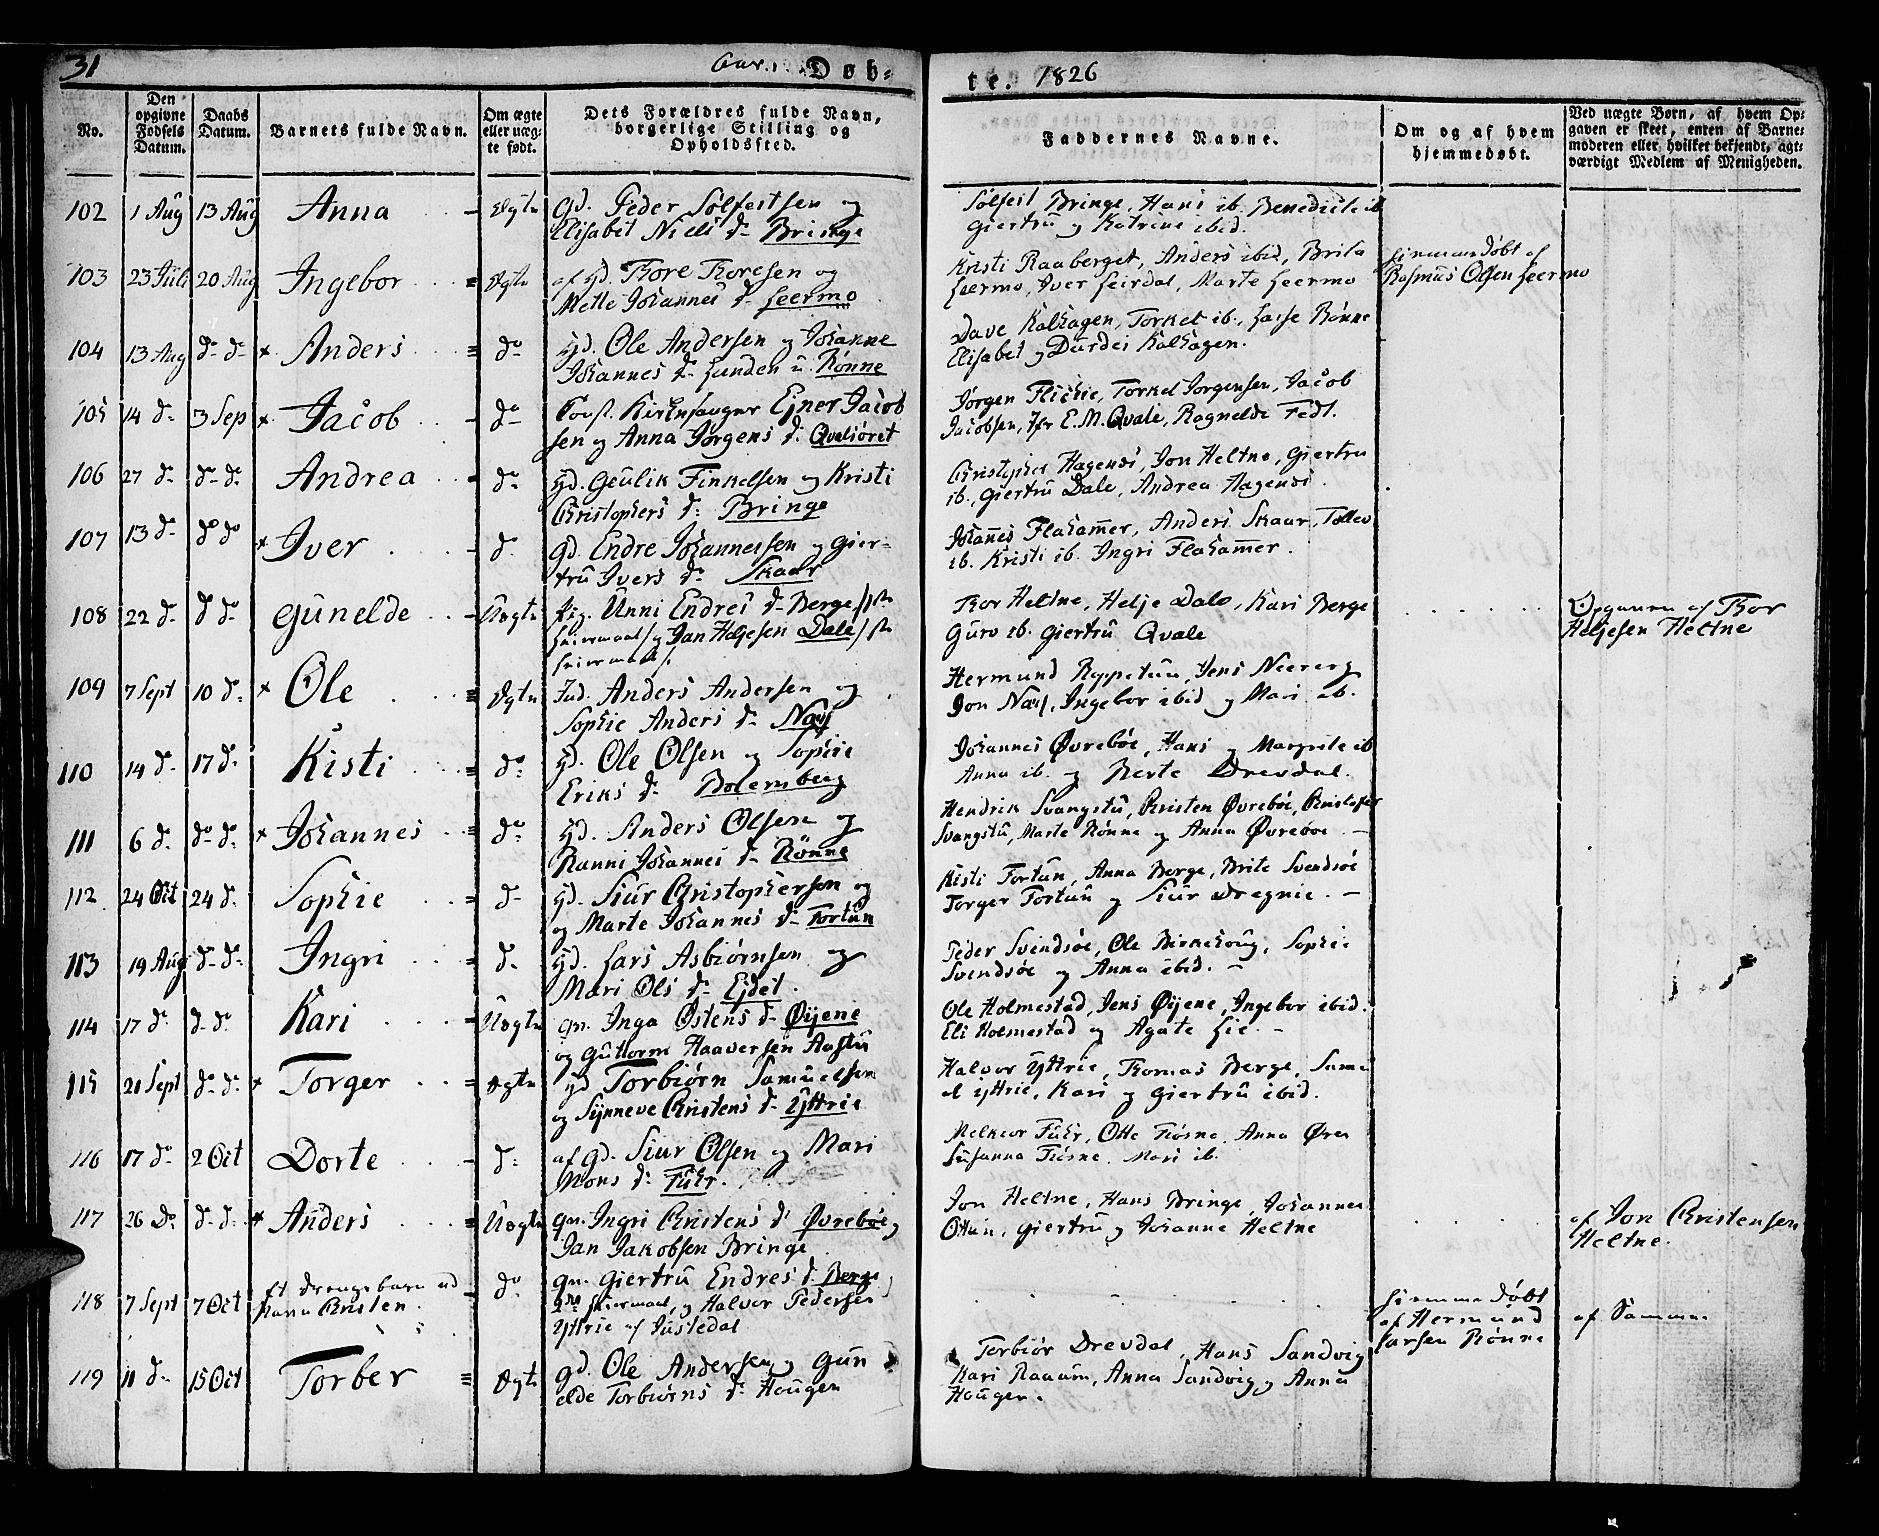 31
Døb-
te. 1826
No.
Den opgivne Fødsels Datum.
Daabs Datum.
Barnets fulde Navn.
Om ægte eller uæg-te født.
Dets Forældres fulde Navn, borgerlige Stilling og Opholdsted.
Faddernes Navne.
Om og af hvem hjemmedøbt.
Ved uægte Børn, af hvem Op-
gaven er skeet, enten af Barne-
moderen eller hvilket bekjendt, agt-
værdigt Medlem af Menigheden.
102 1 Aug 13 Aug Anna Ægte
gd. Peder Solfestsen og
Elisabet Niels d. Bringe
Solfest Bringe, Hans ib. Benedicte ib
Giertru og Katrine ibid.
103 23 Juli 20 Aug Ingebor Ægte
af gd. Thore Thoresen og
Mette Johannes d. Leermo
Kristi Raaberget, Anders ibid, Brita
Leermo, Iver Leirdal, Marte Leermo
hiemmedøbt af
Rasmus Olsen Leermo
104 13 Aug d. d. x Anders do
gd. Ole Andersen og Johanne
Johannes d. Rønne
Dave Kalhagen, Torket ib., Lasse Rønne
Elisabet og Durdei Kalhagen.
105 14 d. 3 Sep x Jacob do
Kirkesanger Ejner Jacob
sen og Anna Jørgens d. Qvaløret
Jørgen Flickie, Torkel Jørgensen, Jacob
Jacobsen, Jfr E. M. Qvale, Ragnelde Fedt.
106 27 d. d. d. Andrea d.
gd. Geulik Finkelsen og Kristi
Christophers d. Bringe
Christopher Hagenæs, Jon Heltne, Giertru
ib., Giertru Dale, Andrea Hagenæs.
107 13 d. do do x Iver d.
gd. Endre Johannessen og Gier-
tru Ivers d. Skaar
Johannes Flahammer, Anders Skaar, Tollev
ib. Kristi ib. Ingri Flahammer.
108 22 d. d. d. Gunelde Uægte
pig. Unni Endres d. Berge/1ste
Leiermaal/ og Jan Heljesen Dale/1ste
Leiermaal/.
Thor Heltne, Helje Dale, Kari Berge
Guro ib. Giertru Qvale
Opgaven af Thor
Heljesen Heltne
109 7 Sept 10 d. x Ole Ægte
Anders Andersen og
Sophie Anders d. Næs
Hermund Ryppetun, Jens Neereng
Jon Næs, Ingebor ibid og Mari ib.
110 14 d. 17 d. Kisti do
gd. Ole Olsen og Sophie
Eriks d. Bolemsberg
Johannes Øvrebøe, Hans og Margrete ib
Anna ib. og Berte Drevdal.
111 6 d. do d. x Johannes do
gd. Anders Olsen og
Ranni Johannes d. Rønne
Hendrik Svangstu, Christen Øvrebøe, Christopher
Svangstu, Marte Rønne og Anna Øvrebøe.
112. 24 Oct 24 d. Sophie d.
gd. Siur Christophersen og
og Marte Johannes d. Fortun
Kisti Fortun, Anna Berge, Brite Svendsøe
Torger Fortun og Siur Dregnie. –
113 19 Aug d. d. Ingri d.
gd. Lars Asbiørnsen og
Mari Ols d. Ejdet.
Peder Svendsøe, Ole Birkehoug, Sophie
Svendsøe og Anna ibid. –
114 17 do d. do Kari Uægte
gm. Inga Østens d. Øyene
og Guttorm Haaversen
Ole Holmestad, Jens Øyene, Ingebor ibid.
Eli Holmestad og Agate Lie. –
115 21 Sept d. d. x Torger Ægte
gd Torbiørn Samuelsen
og Synneve Christens d. Yttrie
Halvor Yttrie, Thomas Berge, Samu
el Yttrie, Kari og Giertru ibid.
116 17 do 2 Oct Dorte d.
af gd. Siur Olsen og Mari
Mons d. Fuhr.
Melkior Fuhr, Otte Fiøsne, Anna Øren
Susanna Fiøsne, Mari ib.
117 26 D. d. d. x Anders Uægte
gm. Ingri Christens d. Øvrebøe og
Jan Jakobsen Bringe
Jon Heltne, Hans Bringe, Johannes
Ottun, Giertru og Johanne Heltne
af Jon Christensen
Heltne.
118 7 Sept 7 Oct Et Drengebarn ud
Navn Christen. do
gm. Giertru Endres d. Berge
2det Leiermaal, og Halvor Pedersen
Yttrie af Justedal
hiemmedøbt
af Hermund
Larsen Rønne
af Samme
119 11 d. 15 Oct Torber Ægte
gd. Ole Andersen og Gun
elde Torbiørns d. Hougen
Torbiør Drevdal, Hans Sandvig
Kari Raaum, Anna Sandvig og Anna
Hougen.